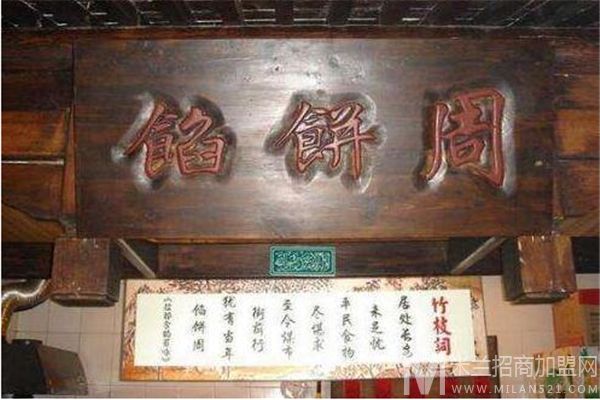 餡餅周
竹枝詞
居处长安
未足忧
平民食物
尽谋求
至今煤市
街前行
犹有当年
馅饼周
《故都食物百咏》
米兰招商加盟网
WWW.MILAN521.COM